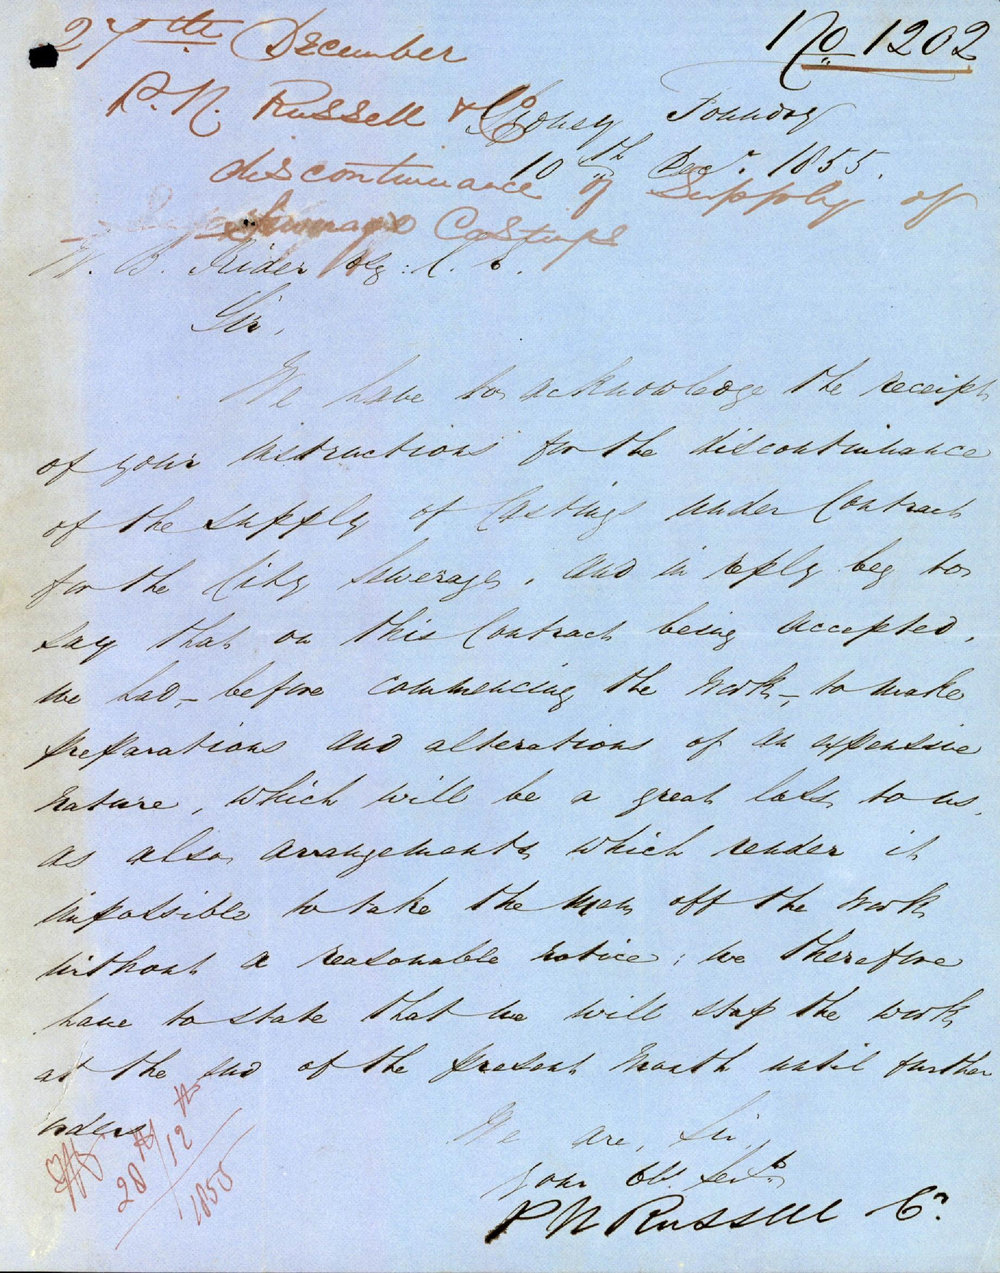 27th December
No 1202
P. N. Russell & Co
Sydney Foundry
10th Decr. 1855.
discontinuance of Supply of
Sewerage Castings
W. B. Rider Esq: C. E.
Sir,
We have to acknowledge the receipt
of your instructions for the discontinuance
of the supply of Castings under Contract
for the City Sewerage, and in reply beg to
say that on this Contract being accepted,
we had, – before commencing the work, – to make
preparations and alterations of an expensive
nature, which will be a great loss to us,
as also arrangements which render it
impossible to take the men off the work
without a reasonable notice; we therefore
have to state that we will stop the work
at the end of the present month until further
orders
We are, Sir,
your Ob. Servts
P N Russell & Co.
28/12/1855